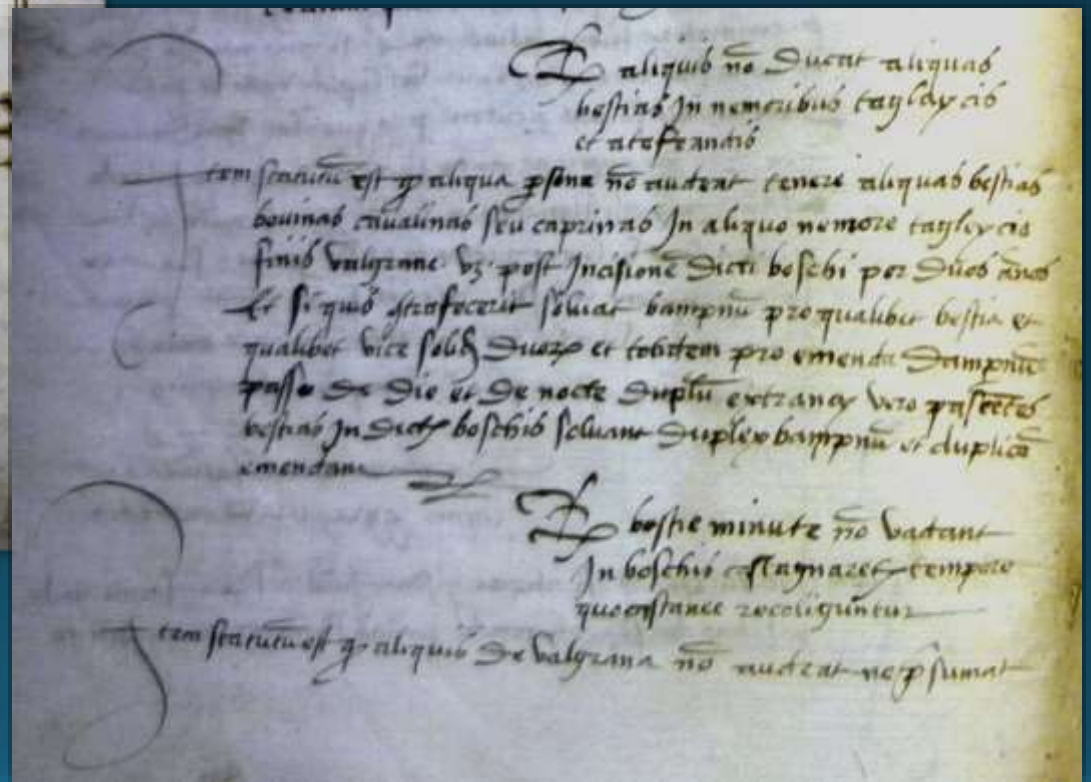 Q aliquis nō ducat aliquas
bestias In nemoribus tayleyciis
et
Item statutū est q aliqua psona nō audeat tenere aliquas bestias
bovinas cavalinas seu caprinas In aliquo nemore tayleyciis
finis valgrane vz post Incisionē dicti boschi per duos ānos
Et si quis ɔtrafecerit solvat bampnū pro qualibet bestia et
qualibet vice solid duorum et totidem pro emenda dampnū
passo de die et de nocte duplū extraney vero pascētes
bestias In dictis boschis solvant duplex bampnū et duplicē
emendam
Q bestie minute nō vadant
In boschis castagnaretis tempore
quo castanee recoliguntur
Item statutū est q aliquis de valgrana nō audeat ne psumat